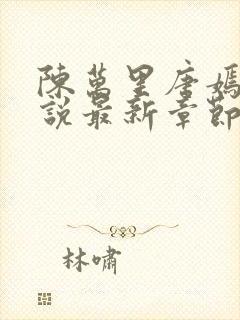 陳萬里唐嫣
說最新章節
林嘯